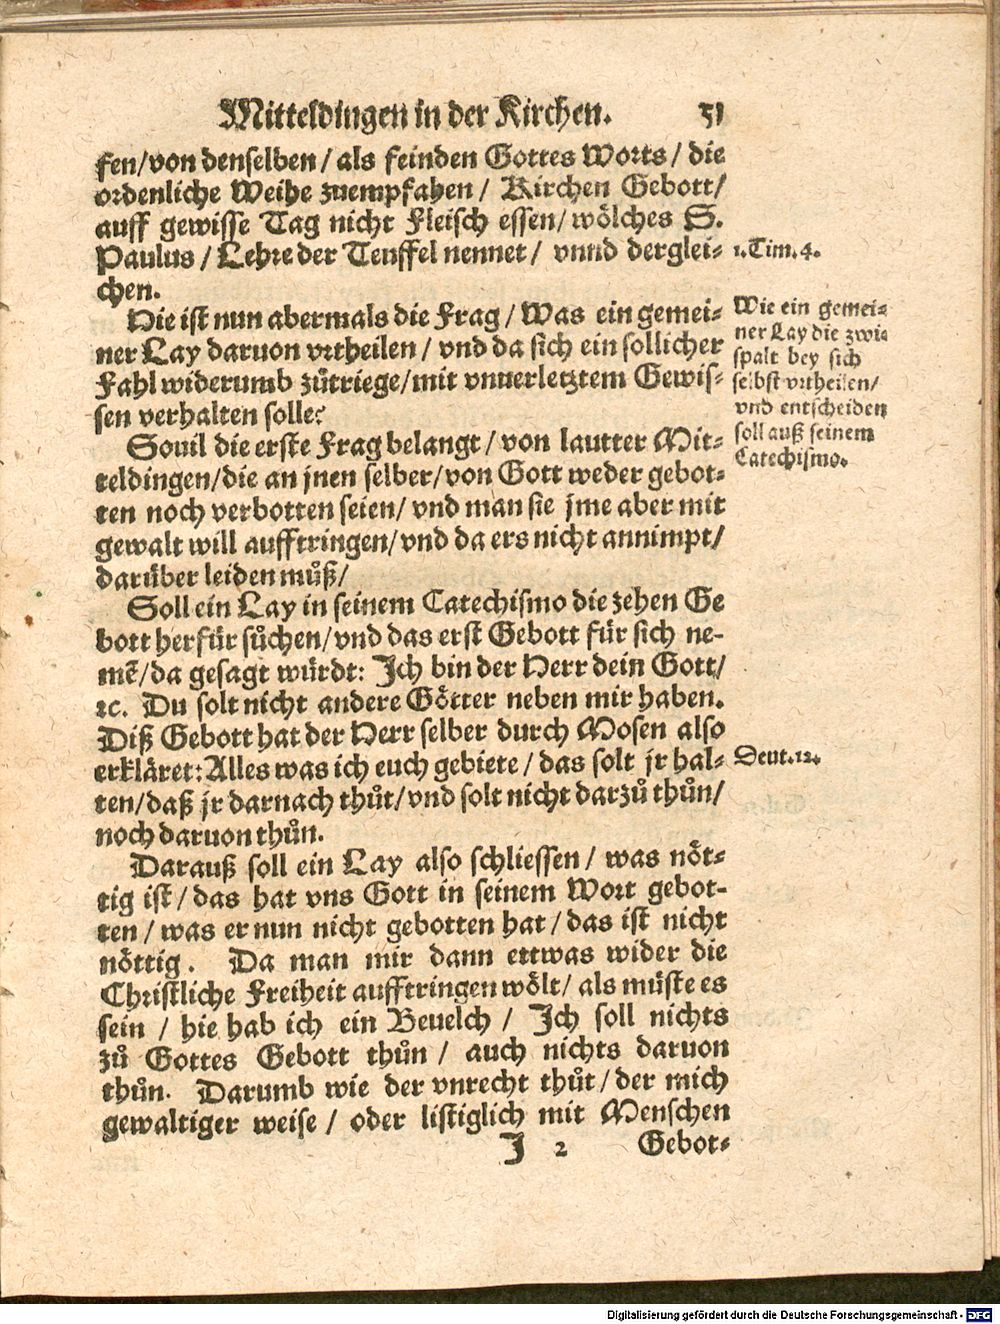 Mitteldingen in der Kirchen. 51
fen/von denselben/ als feinden Gottes Worts/ die
ordenliche Weihe zuempfahen/ Kirchen Gebott/
auff gewisse Tag nicht Fleisch essen/ wölches S.
Paulus/ Lehre der Teuffel nennet/ vnnd derglei-
chen.
1. Tim. 4.
Hie ist nun abermals die Frag/ Was ein gemei-
ner Lay daruon vrtheilen/ vnd da sich ein sollicher
Fahl widerumb zůtriege/ mit vnuerletztem Gewis-
sen verhalten solle?
Wie ein gemei-
ner Lay die zwi-
spalt bey sich
selbst vrtheilen/
vnd entscheiden
soll auß seinem
Catechismo.
Souil die erste Frag belangt/ von lautter Mit-
teldingen/die an jnen selber/von Gott weder gebot-
ten noch verbotten seien/ vnd man sie jme aber mit
gewalt will aufftringen/vnd da ers nicht annimpt/
darüber leiden můß/
Soll ein Lay in seinem Catechismo die zehen Ge
bott herfür sůchen/vnd das erst Gebott für sich ne-
mẽ/da gesagt würdt: Ich bin der Herr dein Gott/
ꝛc. Du solt nicht andere Götter neben mir haben.
Diß Gebott hat der Herr selber durch Mosen also
erkläret: Alles was ich euch gebiete/ das solt jr hal-
ten/daß jr darnach thůt/vnd solt nicht darzů thůn/
noch daruon thůn.
Deut. 12.
Darauß soll ein Lay also schliessen/ was nöt-
tig ist/ das hat vns Gott in seinem Wort gebot-
ten/ was er nun nicht gebotten hat/ das ist nicht
nöttig. Da man mir dann ettwas wider die
Christliche Freiheit aufftringen wölt/ als müste es
sein/ hie hab ich ein Beuelch/ Ich soll nichts
zů Gottes Gebott thůn/ auch nichts daruon
thůn. Darumb wie der vnrecht thůt/ der mich
gewaltiger weise/ oder listiglich mit Menschen
J 2 Gebot-
Digitalisierung gefördert durch die Deutsche Forschungsgemeinschaft - DFG